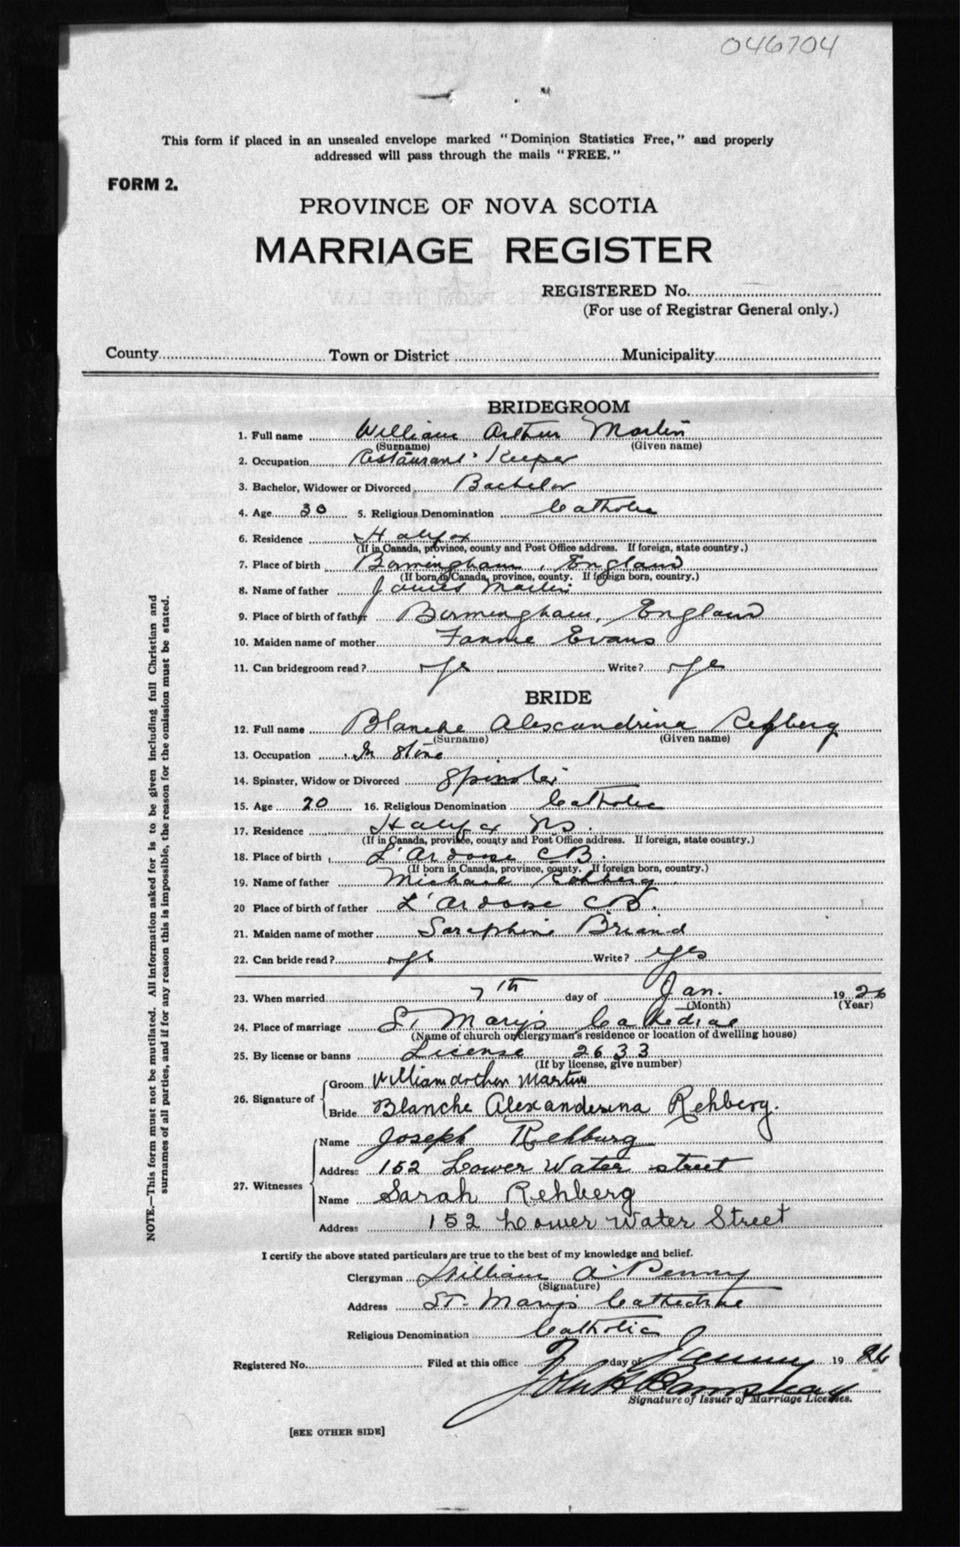 046704
This form if placed in an unsealed envelope marked "Dominion Statistics Free," and properly
addressed will pass through the mails "FREE."
FORM 2.
PROVINCE OF NOVA SCOTIA
MARRIAGE REGISTER
REGISTERED No.
(For use of Registrar General only.)
County Town or District Municipality
BRIDEGROOM
1. Full name William Arthur Martin
(Surname) (Given name)
2. Occupation Restaurant Keeper
3. Bachelor, Widower or Divorced Bachelor
4. Age 30 5. Religious Denomination Catholic
6. Residence Halifax
(If in Canada, province, county and Post Office address. If foreign, state country.)
7. Place of birth Birmingham, England
(If born in Canada, province, county. If foreign born, country.)
8. Name of father James Martin
9. Place of birth of father Birmingham, England
10. Maiden name of mother Fannie Evans
11. Can bridegroom read? Yes Write? Yes
BRIDE
12. Full name Blanche Alexandrina Rehberg
(Surname) (Given name)
13. Occupation In Store
14. Spinster, Widow or Divorced Spinster
15. Age 20 16. Religious Denomination Catholic
17. Residence Halifax NS.
(If in Canada, province, county and Post Office address. If foreign, state country.)
18. Place of birth L'Ardoise CB.
(If born in Canada, province, county. If foreign born, country.)
19. Name of father Michael Rehberg
20 Place of birth of father L'Ardoise CB.
21. Maiden name of mother Seraphine Briand
22. Can bride read? Yes Write? Yes
23. When married 7th day of Jan. 1926
(Month) (Year)
24. Place of marriage St. Mary's Cathedral
(Name of church or clergyman's residence or location of dwelling house)
25. By license or banns License 2633
(If by license, give number)
26. Signature of Groom William Arthur Martin
Bride Blanche Alexanderina Rehberg.
27. Witnesses Name Joseph Rehburg
Address 152 Lower Water street
Name Sarah Rehberg
Address 152 Lower Water Street
I certify the above stated particulars are true to the best of my knowledge and belief.
Clergyman William A. Penny
(Signature)
Address St. Mary's Cathedral
Religious Denomination Catholic
Registered No. Filed at this office 7 day of January 1926
John
Signature of Issuer of Marriage Licenses.
[SEE OTHER SIDE]
NOTE.—This form must not be mutilated. All information asked for is to be given including full Christian and
surnames of all parties, and if for any reason this is impossible, the reason for the omission must be stated.